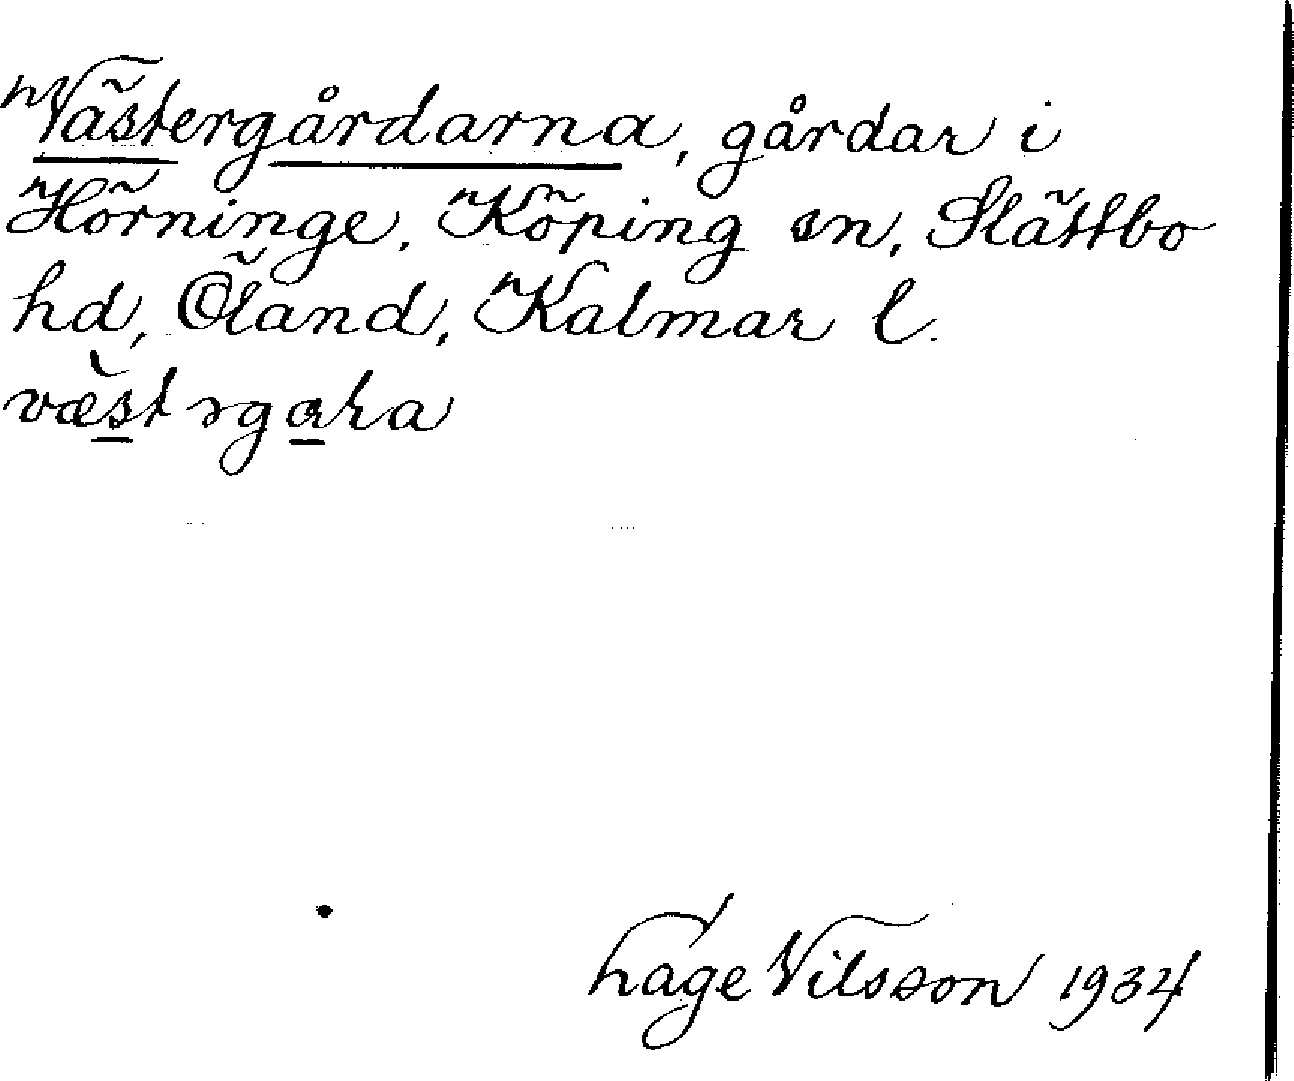 Västergårdarna, gårdar i
Hörninge, Köping sn, Slättbo
hd, Öland, Kalmar l.
væst
Nilsson 1934